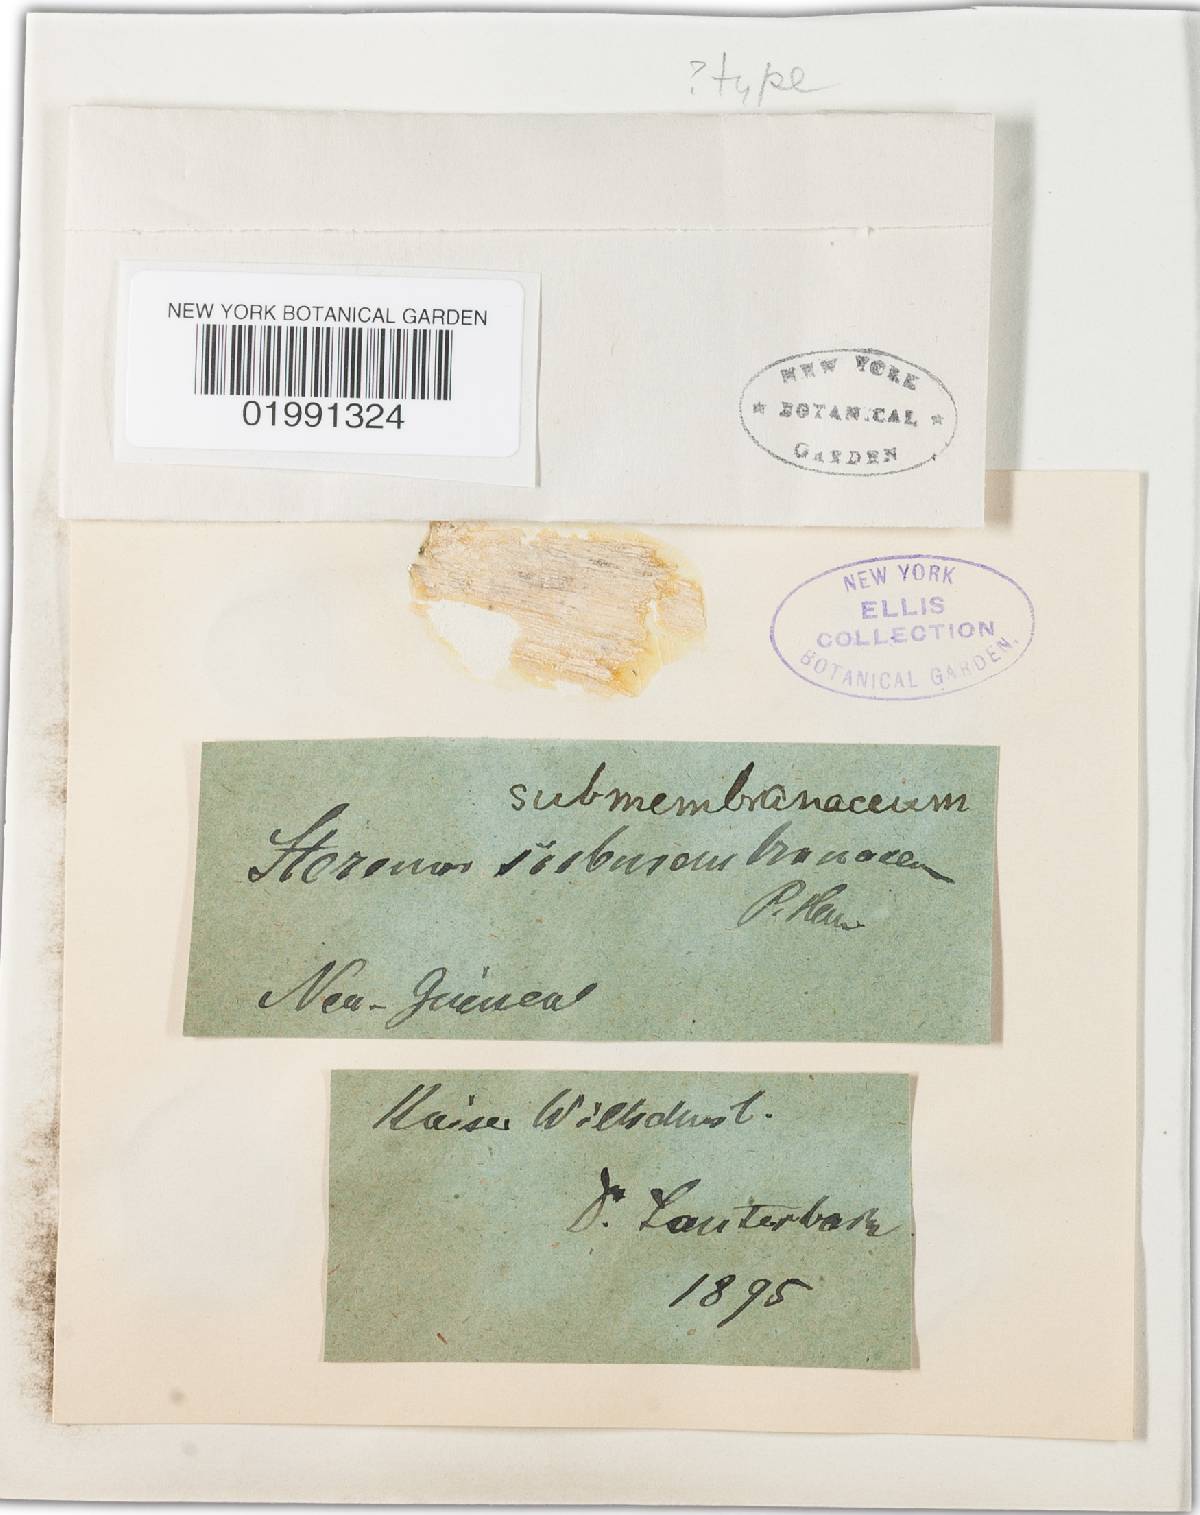 ?type
NEW YORK BOTANICAL GARDEN
01991324
NEW YORK
BOTANICAL
GARDEN
NEW YORK
ELLIS
COLLECTION
BOTANICAL GARDEN.
submembranaceum
Stereum submembranaceum
P. Henn
Neu-Guinea
Kaiser Wilhelmsl.
Dr. Lauterbach
1895